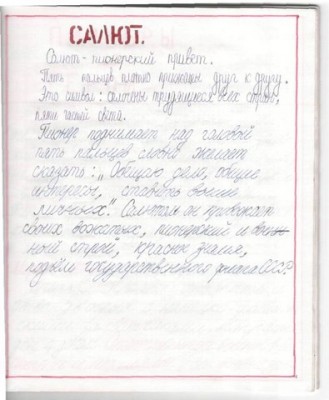 САЛЮТ.
Салют - пионерский привет.
Пять пальцев плотно прижаты друг к другу.
Это символ: сплочены трудящиеся всех стран,
пяти частей света.
Пионер поднимает над головой
пять пальцев словно желает
сказать: „Общие дела, общие
интересы, ставлю выше
личных". Салютом он провожает
своих вожатых, пионерский и воин-
ный строй, красное знамя,
подъём государственного флага СССР.